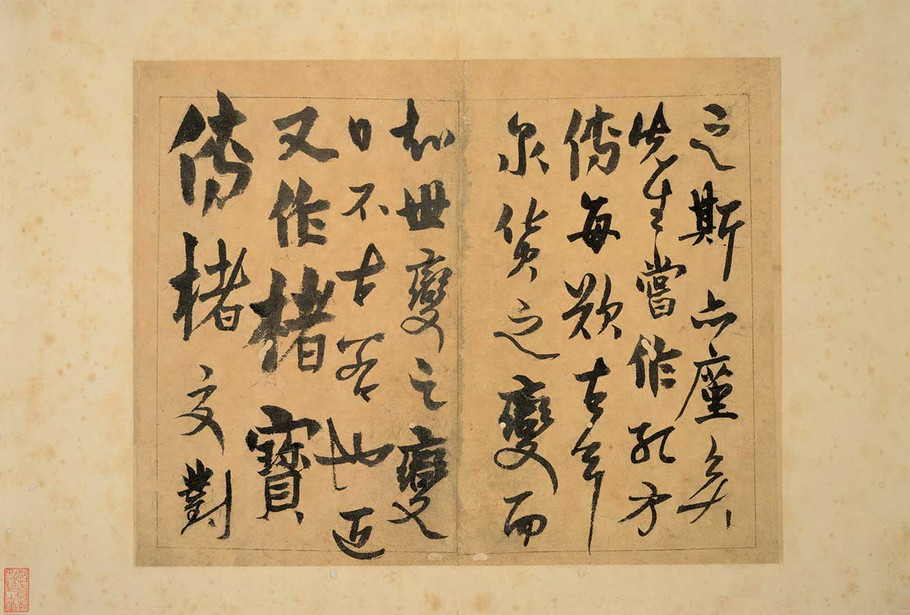 之斯亦矣
先生嘗作孔方
傳每歎古
泉貨之變而
知世變之變
日不古若也近
又作楮寶
傳楮文對